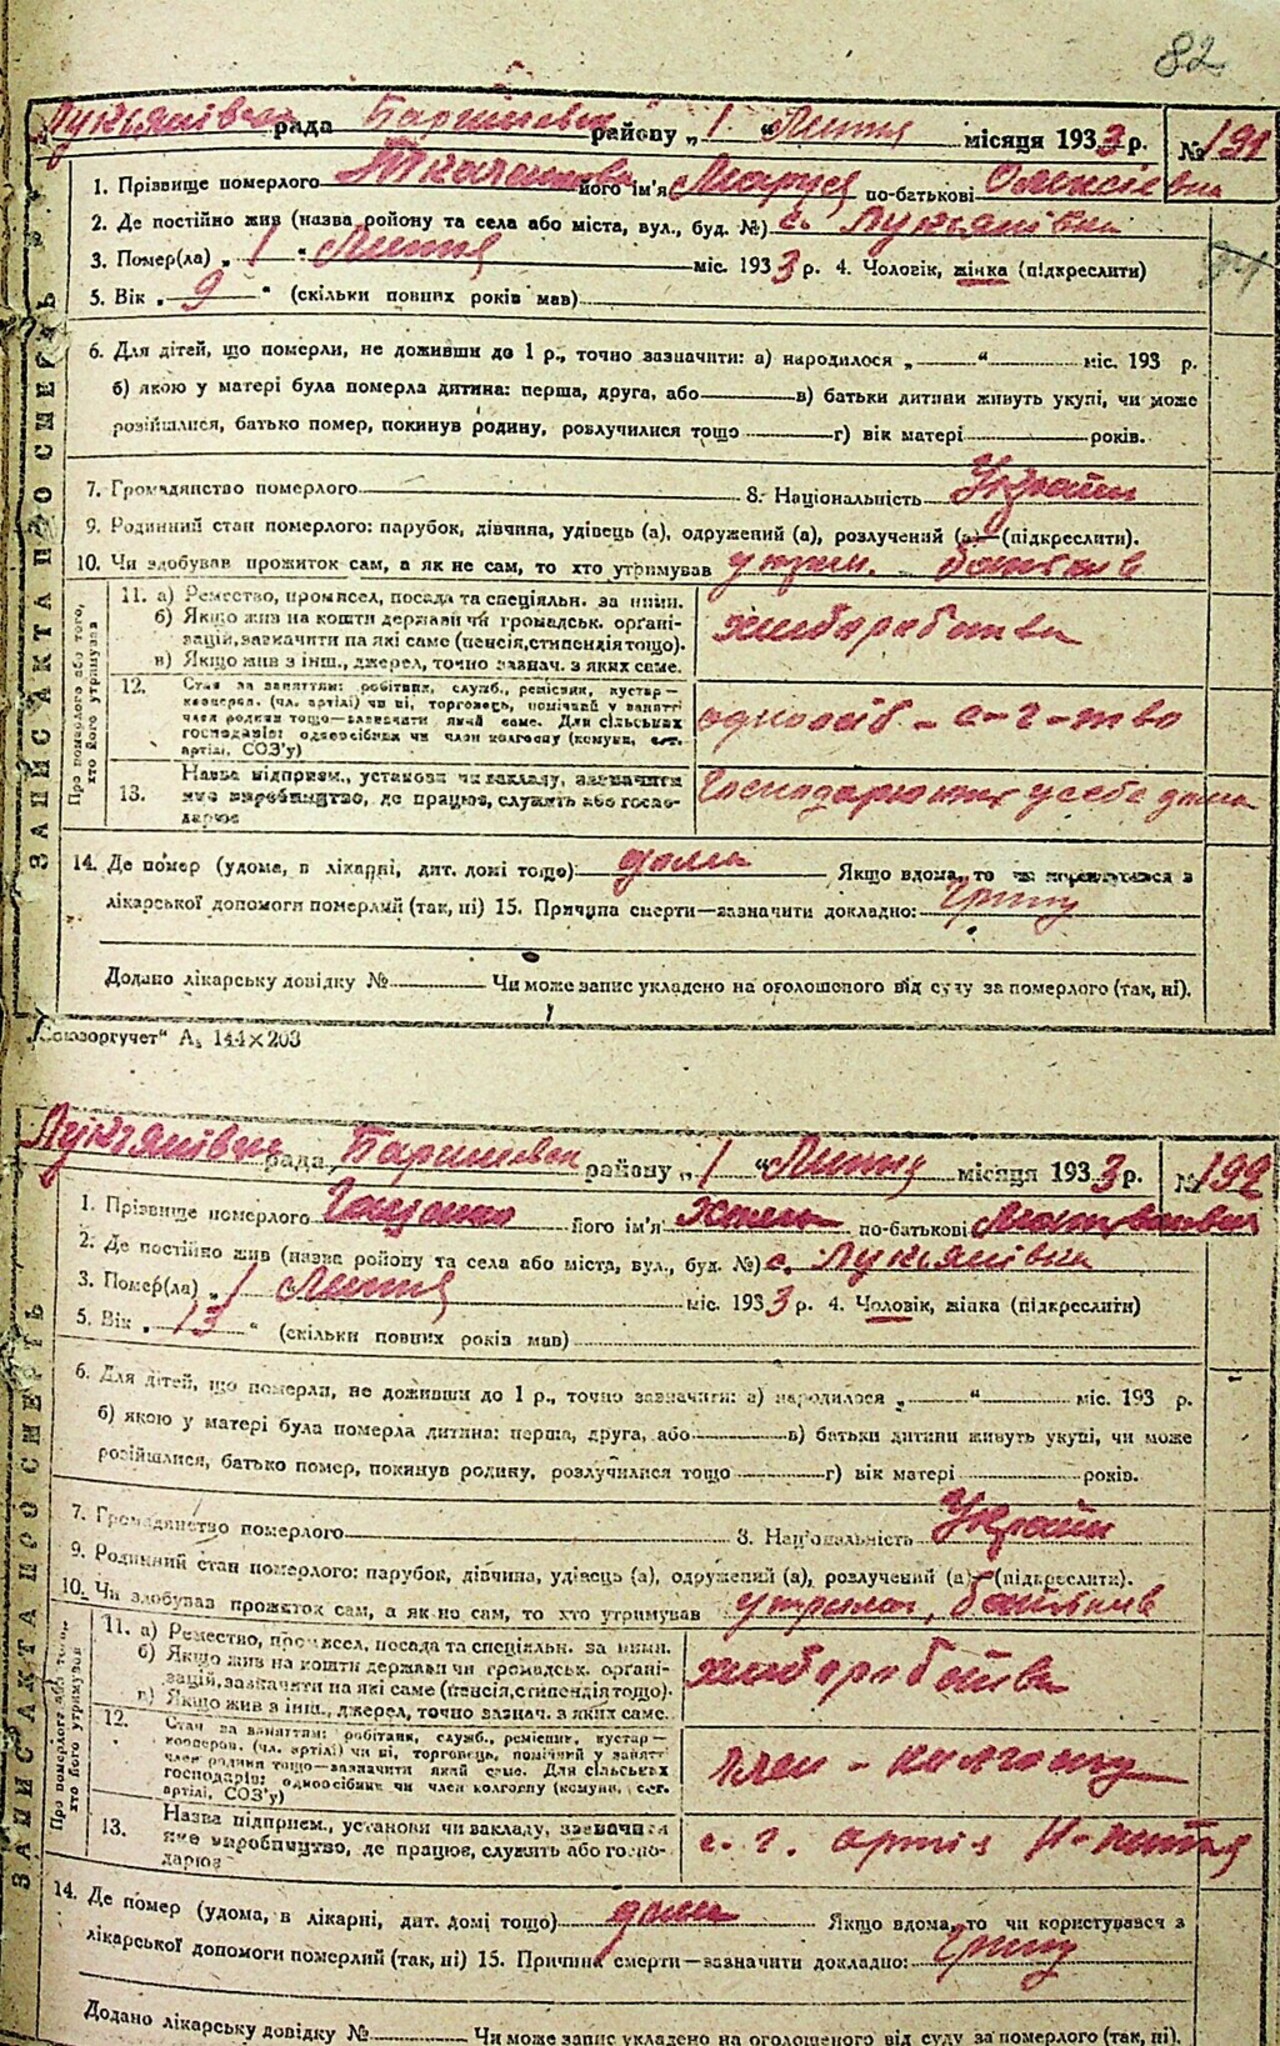 82
Лукьянівська рада Баришівськ району „ 1 “ Липня місяця 1933 р. № 191
1. Прізвище померлого Ткаченкова його ім'я Маруся по-батькові Олексіевна
2. Де постійно жив (назва ройону та села або міста, вул., буд. №) с. Лукьянівка
3. Помер(ла) „ 1 “ Липня міс. 1933 р. 4. Чоловік, жінка (підкреслити)
5. Вік „ 9 “ (скільки повних років мав)
6. Для дітей, що померли, не доживши до 1 р., точно зазначити: а) народилося „ “ міс. 193 р.
б) якою у матері була померла дитина: перша, друга, або в) батьки дитини живуть укупі, чи може
розійшлися, батько помер, покинув родину, розлучилися тощо г) вік матері років.
7. Громадянство померлого 8. Національність Україн
9. Родинний стан померлого: парубок, дівчина, удівець (а), одружений (а), розлучений (а) (підкреслити).
10. Чи здобував прожиток сам, а як не сам, то хто утримував утрим. батьків
ЗАПИС АКТА ПРО СМЕРТЬ
Про померлого або того, хто його утримував
11. а) Ремество, промисел, посада та спеціяльн. за ними.
б) Якщо жив на кошти держави чи громадськ. органі-
зацій, зазначити на які саме (пенсія, стипендія тощо).
в) Якщо жив з інш., джерел, точно зазнач. з яких саме.
хліборобства
12. Стан за заняттям: робітник, служб., ремісник, кустар—
кооперов. (чл. артілі) чи ні, торговець, помічний у занятті
член родини тощо—зазначити який саме. Для сільських
господарів: одноосібник чи член колгоспу (комуни, с.г.
артілі, СОЗ'у)
одноосіб - с-г-тво
13. Назва підприєм., установи чи закладу, зазначити
яке виробництво, де працює, служить або госпо-
дарює
Господарюють у себе дома
14. Де помер (удома, в лікарні, дит. домі тощо) дома Якщо вдома, то чи користувався з
лікарської допомоги померлий (так, ні) 15. Причина смерти—зазначити докладно: Грипу
Додано лікарську довідку № Чи може запис укладено на оголошеного від суду за померлого (так, ні).
„Союзоргучет“ А₅ 144×203
Лукьянівська рада Баришівськ району „ 1 “ Липня місяця 1933 р. № 192
1. Прізвище померлого його ім'я по-батькові
2. Де постійно жив (назва ройону та села або міста, вул., буд. №) с. Лукьянівка
3. Помер(ла) „ 1 Липня міс. 1933 р. 4. Чоловік, жінка (підкреслити)
5. Вік „ 13 “ (скільки повних років мав)
6. Для дітей, що померли, не доживши до 1 р., точно зазначити: а) народилося „ “ міс. 193 р.
б) якою у матері була померла дитина: перша, друга, або в) батьки дитини живуть укупі, чи може
розійшлися, батько помер, покинув родину, розлучилися тощо г) вік матері років.
7. Громадянство померлого 8. Національність Україн
9. Родинний стан померлого: парубок, дівчина, удівець (а), одружений (а), розлучений (а) (підкреслити).
10. Чи здобував прожиток сам, а як не сам, то хто утримував утриман, батьків
ЗАПИС АКТА ПРО СМЕРТЬ
Про померлого або того, хто його утримував
11. а) Ремество, промисел, посада та спеціяльн. за ними.
б) Якщо жив на кошти держави чи громадськ. органі-
зацій, зазначити на які саме (пенсія, стипендія тощо).
в) Якщо жив з інш., джерел, точно зазнач. з яких саме.
хліборобства
12. Стан за заняттям: робітник, служб., ремісник, кустар—
кооперов. (чл. артілі) чи ні, торговець, помічний у занятті
член родини тощо—зазначити який саме. Для сільських
господарів: одноосібник чи член колгоспу (комуни, с.г.
артілі, СОЗ'у)
член - колгоспу
13. Назва підприєм., установи чи закладу, зазначити
яке виробництво, де працює, служить або госпо-
дарює
с. г. артіл
14. Де помер (удома, в лікарні, дит. домі тощо) дома Якщо вдома, то чи користувався з
лікарської допомоги померлий (так, ні) 15. Причина смерти—зазначити докладно: Грипу
Додано лікарську довідку № Чи може запис укладено на оголошеного від суду за померлого (так, ні).